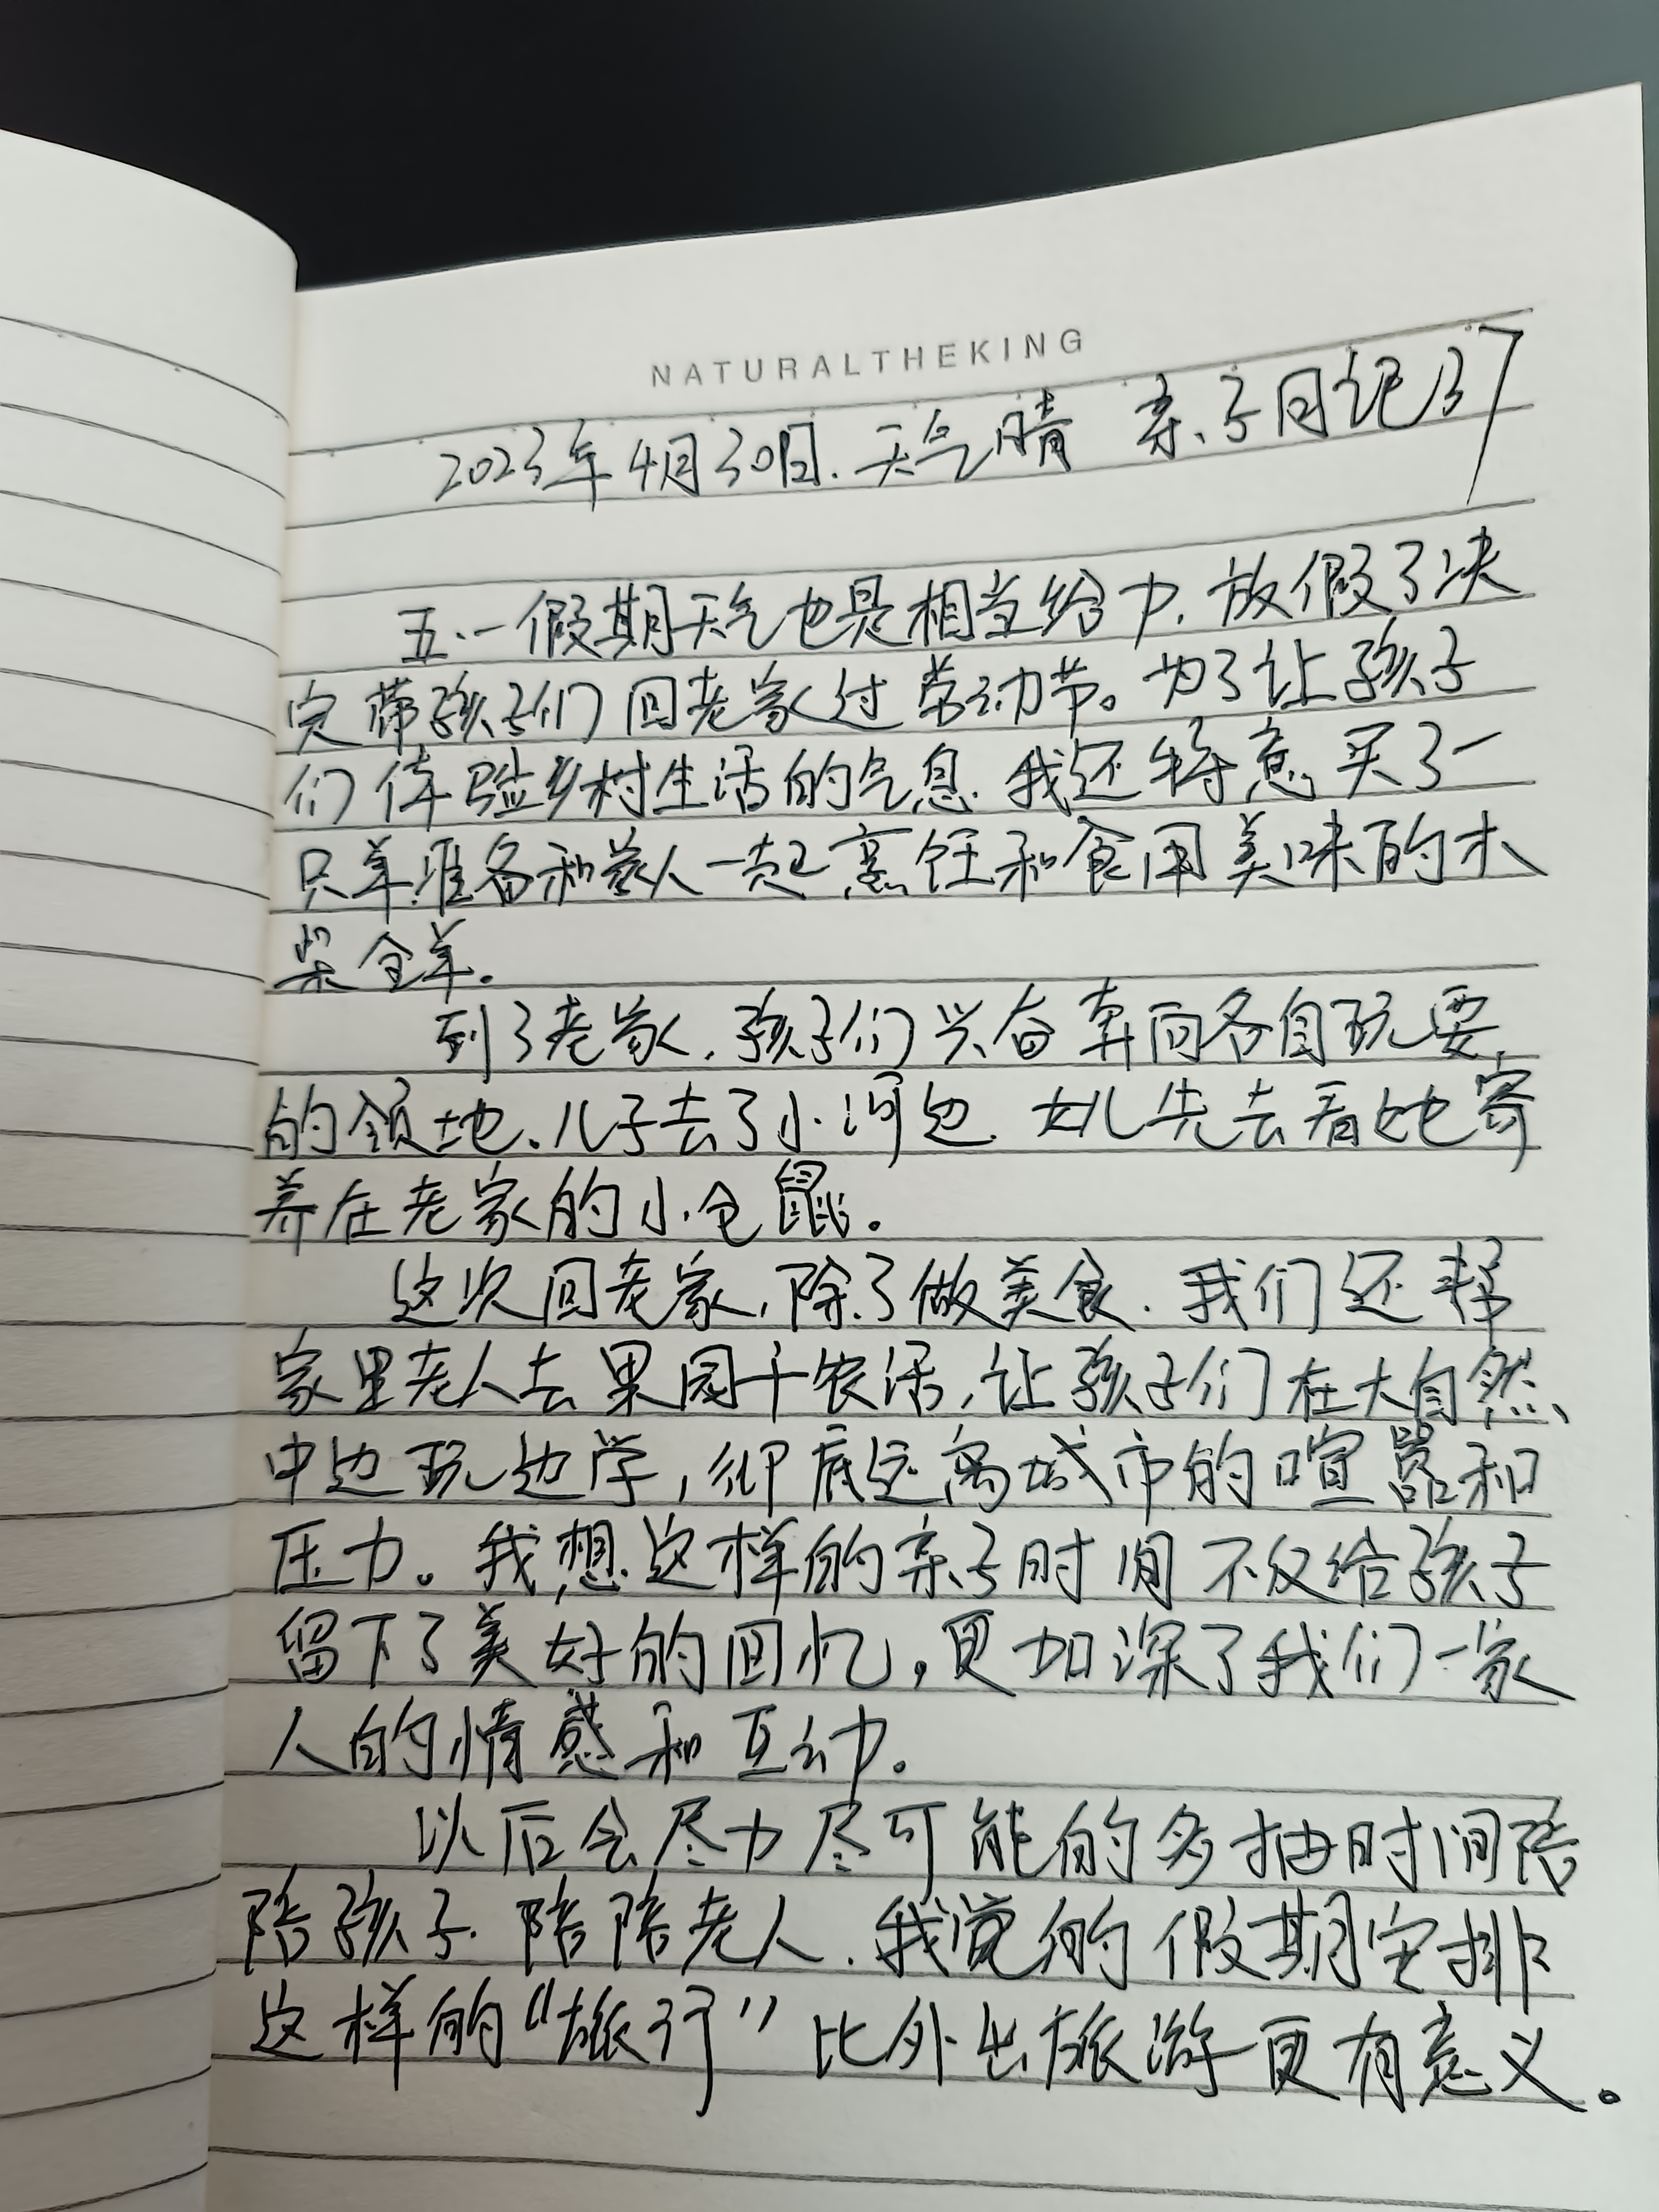 NATURALTHEKING
2023年4月30日.天气晴 亲子日记37
五.一假期天气也是相当给力,放假了决
定带孩子们回老家过劳动节。为了让孩子
们体验乡村生活的气息.我还特意买了一
只羊.准备和家人一起烹饪和食用美味的木
柴全羊.
到了老家,孩子们兴奋奔向各自玩耍
的领地、儿子去了小河边.女儿先去看她寄
养在老家的小仓鼠.
这次回老家,除了做美食.我们还帮
家里老人去果园干农活,让孩子们在大自然、
中边玩边学,彻底远离城市的喧嚣和
压力。我想这样的亲子时间不仅给孩子
留下了美好的回忆,更加深了我们一家
人的情感和互动.
以后会尽力尽可能的多抽时间陪
陪孩子.陪陪老人.我觉的假期安排
这样的“旅行”比外出旅游更有意义。